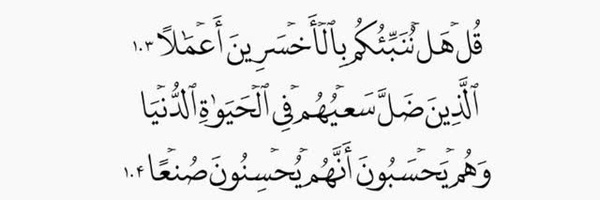 قُلۡ هَلۡ نُنَبِّئُكُم بِٱلۡأَخۡسَرِينَ أَعۡمَٰلًا ١٠٣
ٱلَّذِينَ ضَلَّ سَعۡيُهُمۡ فِي ٱلۡحَيَوٰةِ ٱلدُّنۡيَا
وَهُمۡ يَحۡسَبُونَ أَنَّهُمۡ يُحۡسِنُونَ صُنۡعًا ١٠٤